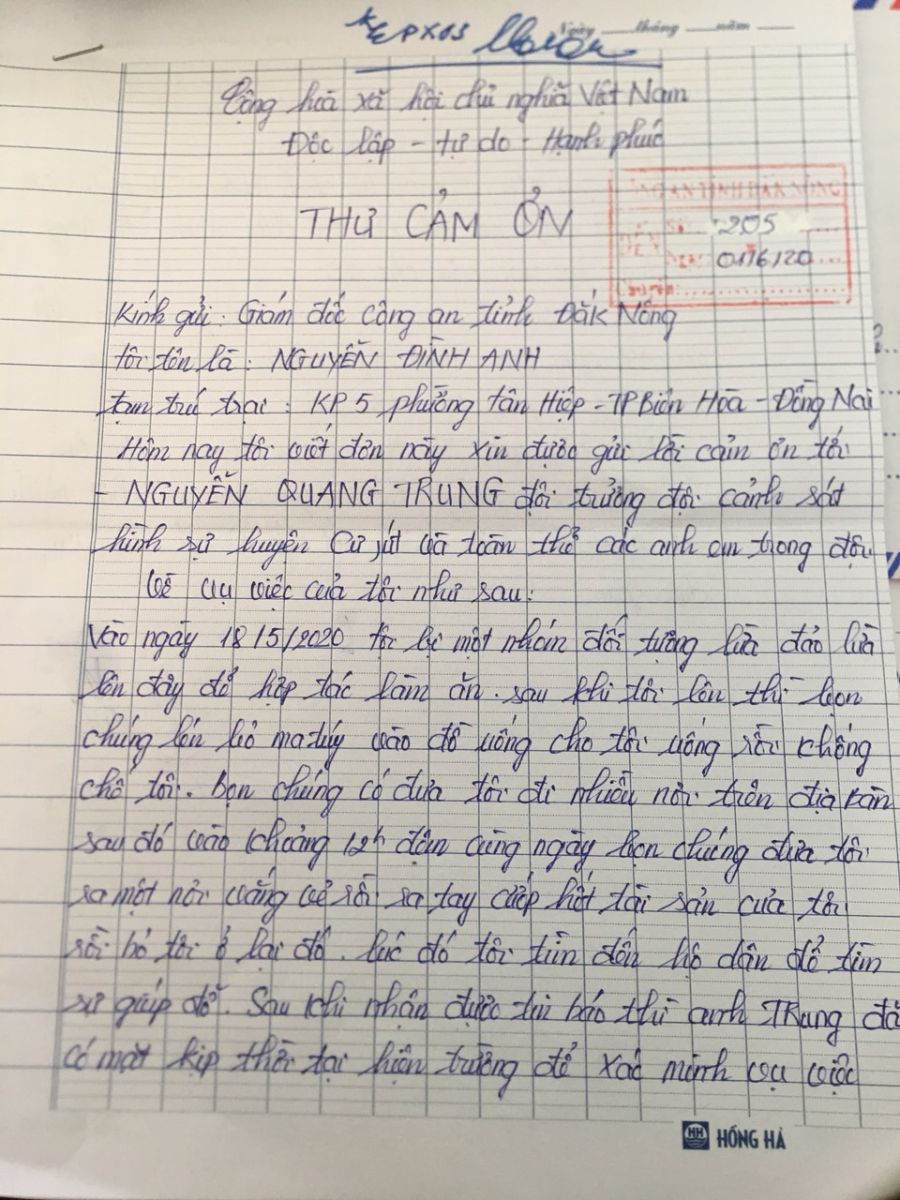 Ngày tháng năm
K/c PX03
Cộng hoà xã hội chủ nghĩa Việt Nam
Độc lập - tự do - Hạnh phúc
THƯ CẢM ƠN
CÔNG AN TỈNH ĐĂK NÔNG
ĐẾN Số: 205
Ngày: 01/6/20
Chuyển:
Kính gửi: Giám đốc công an tỉnh Đắk Nông
tôi tên là: NGUYỄN ĐÌNH ANH
tạm trú tại: KP 5 phường tân Hiệp - TP Biên Hòa - Đồng Nai
Hôm nay tôi viết đơn này xin được gửi lời cảm ơn tới
- NGUYỄN QUANG TRUNG đội trưởng đội cảnh sát
hình sự huyện Cư jút và toàn thể các anh em trong đội
về vụ việc của tôi như sau:
Vào ngày 18/5/2020 tôi bị một nhóm đối tượng lừa đảo lừa
lên đây để hợp tác làm ăn. sau khi tôi lên thì bọn
chúng lén bỏ ma túy vào đồ uống cho tôi uống rồi khống
chế tôi. bọn chúng có đưa tôi đi nhiều nơi trên địa bàn
sau đó vào khoảng 12h đêm cùng ngày bọn chúng đưa tôi
ra một nơi vắng vẻ rồi ra tay cướp hết tài sản của tôi
rồi bỏ tôi ở lại đó. lúc đó tôi tìm đến hộ dân để tìm
sự giúp đỡ. Sau khi nhận được tin báo thì anh TRung đã
có mặt kịp thời tại hiện trường để xác minh vụ việc
HH HỒNG HÀ